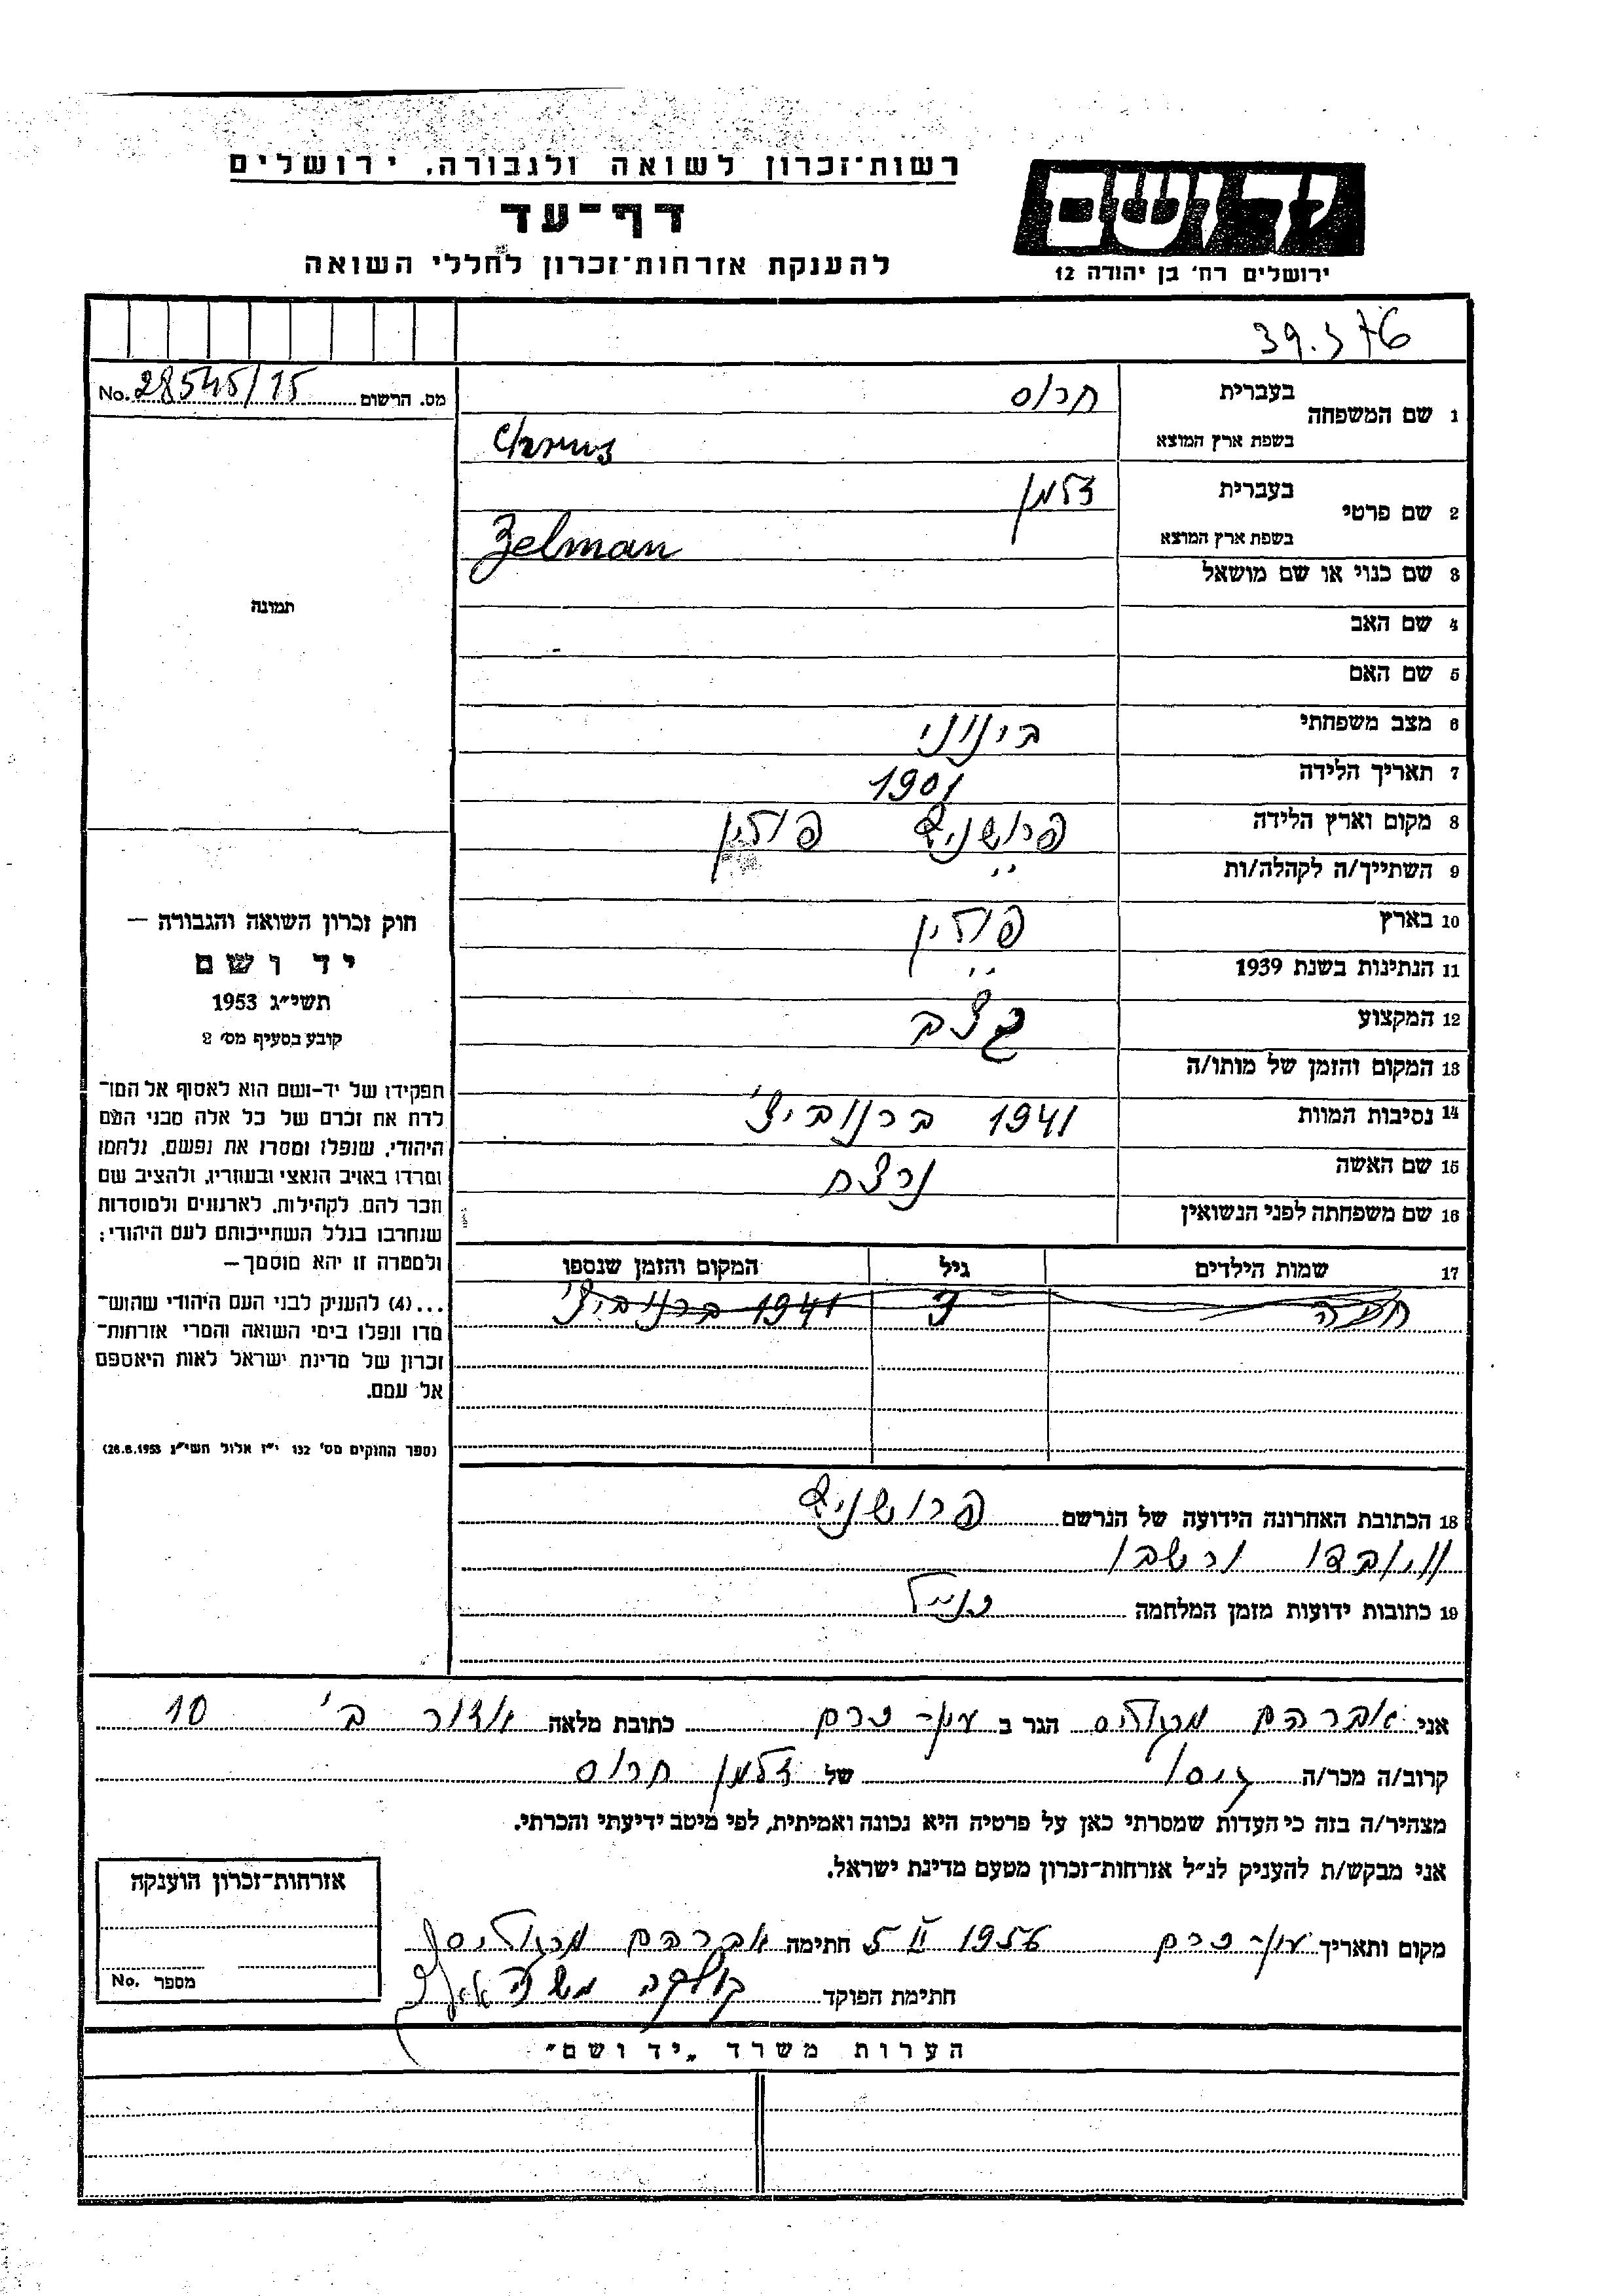 רשות־זכרון לשואה ולגבורה, ירושלים
דף־עד
להענקת אזרחות־זכרון לחללי השואה
יד ושם
ירושלים רח' בן יהודה 12
No. 28545/15 מס. הרשום
1 שם המשפחה
בעברית חרוס
בשפת ארץ המוצא
2 שם פרטי
בעברית זלמן
בשפת ארץ המוצא Zelman
3 שם כנוי או שם מושאל
4 שם האב
5 שם האם
6 מצב משפחתי בינוני
7 תאריך הלידה 1901
8 מקום וארץ הלידה פרושניץ פולין
9 השתייך/ה לקהלה/ות ״
10 בארץ פולין
11 הנתינות בשנת 1939 ״
12 המקצוע קצב
13 המקום והזמן של מותו/ה
14 נסיבות המוות 1941 ברנוביץ'
15 שם האשה נרצח
16 שם משפחתה לפני הנשואין
17 שמות הילדים גיל המקום והזמן שנספו
1941 ברנוביץ'
תמונה
חוק זכרון השואה והגבורה —
יד ושם
תשי״ג 1953
קובע בסעיף מס' 2
תפקידו של יד-ושם הוא לאסוף אל המו־
לדת את זכרם של כל אלה מבני העם
היהודי, שנפלו ומסרו את נפשם, נלחמו
ומרדו באויב הנאצי ובעוזריו, ולהציב שם
וזכר להם, לקהילות, לארגונים ולמוסדות
שנחרבו בגלל השתייכותם לעם היהודי;
ולמטרה זו יהא מוסמך—
...(4) להעניק לבני העם היהודי שהוש־
מדו ונפלו בימי השואה והמרי אזרחות־
זכרון של מדינת ישראל לאות היאספם
אל עמם.
(ספר החוקים מס' 132 י״ז אלול תשי״ג 28.8.1953)
18 הכתובת האחרונה הידועה של הנרשם פרושניץ
19 כתובות ידועות מזמן המלחמה כנ״ל
אני אברהם מרגוליס הגר ב עין-כרם כתובת מלאה אזור ב' 10
קרוב/ה מכר/ה גיסו של זלמן חרוס
מצהיר/ה בזה כי העדות שמסרתי כאן על פרטיה היא נכונה ואמיתית, לפי מיטב ידיעתי והכרתי.
אני מבקש/ת להעניק לנ״ל אזרחות־זכרון מטעם מדינת ישראל.
מקום ותאריך עין-כרם 1956 II 5 חתימה אברהם מרגוליס
חתימת הפוקד
אזרחות־זכרון הוענקה
No. מספר
הערות משרד „יד ושם״